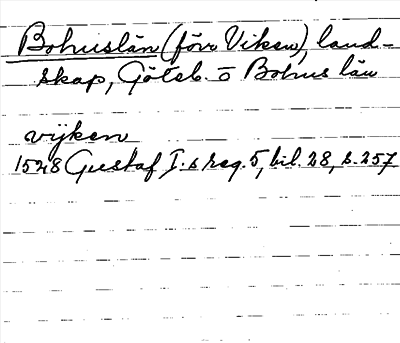 Bohuslän (förr Viken), land-
skap, Göteb. o Bohus län
vijken
1528 Gustaf I.s reg. 5, bil. 28, s. 257